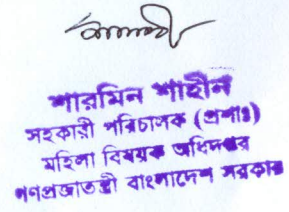 শারমিন শাহীন
সহকারী পরিচালক (প্রশাঃ)
মহিলা বিষয়ক অধিদপ্তর
গণপ্রজাতন্ত্রী বাংলাদেশ সরকার